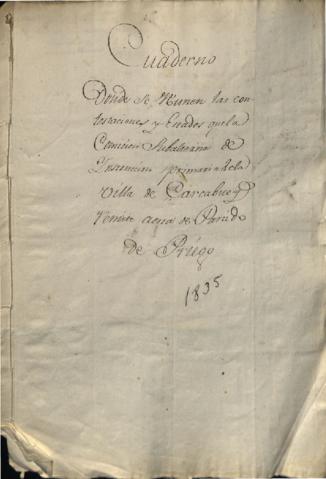 Cuaderno
Donde se Reunen las con-
testaciones y Estados que la
Comision Subalterna de
Instruccion primaria de la
Villa de Carcabuey
remite a la de Partido
de Priego
1835